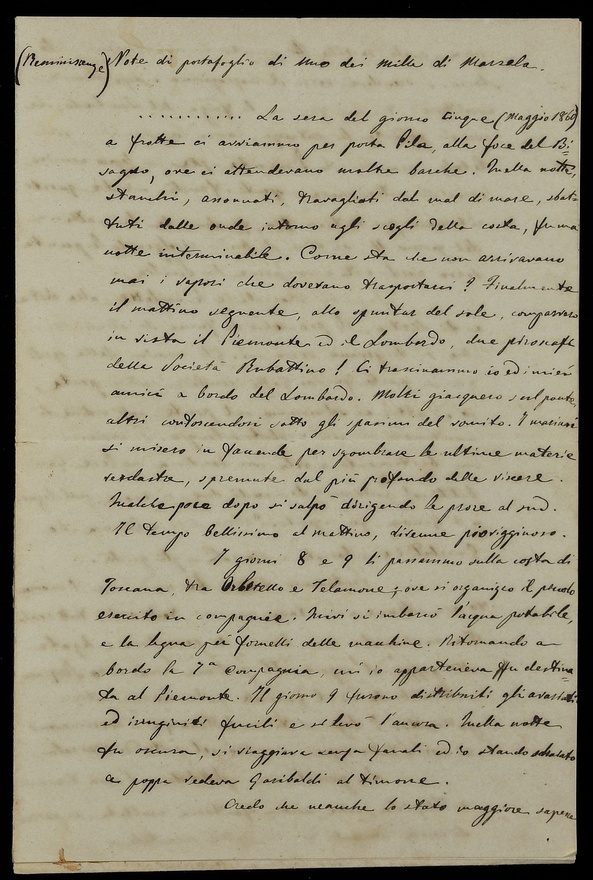 (Reminiscenze) Note di portafoglio di uno dei mille di Marsala.
........... La sera del giorno cinque (Maggio 1860)
a frotte ci avviammo per porta Pila, alla foce del Bi=
sagno, ove ci attendevano molte barche. Nella notte,
stanchi, assonnati, travagliati dal mal di mare, sbat=
tuti dalle onde intorno agli scogli della costa, fu una
notte interminabile. Come sta che non arrivavano
mai i vapori che dovevano trasportarci? Finalmente
il mattino seguente, allo spuntar del sole, comparvero
in vista il Piemonte ed il Lombardo, due piroscafi
della Società Rubattino! Ci trascinammo io ed i miei
amici a bordo del Lombardo. Molti giacquero sul ponte,
altri contorcendosi sotto gli spasimi del vomito. I marinai
si misero in faccende per sgombrare le ultime materie
verdastre, spremute dal più profondo delle viscere.
Qualche poco dopo si salpò dirigendo le prore al sud.
Il tempo bellissimo al mattino, divenne piovigginoso.
I giorni 8 e 9 li passammo sulla costa di
Toscana, tra Orbetello e Telamone, ove si organizzò il piccolo
esercito in compagnie. Quivi si imbarcò l'acqua potabile,
e la legna pei fornelli delle macchine. Ritornando a
bordo la 7ª Compagnia, cui io apparteneva fu destina=
ta al Piemonte. Il giorno 9 furono distribuiti gli avariati
ed irruginiti fucili e si levò l'ancora. Nella notte
fu oscura, si viaggiava senza fanali ed io stando sdraiato
a poppa vedeva Garibaldi al timone.
Credo che neanche lo stato maggiore sapesse